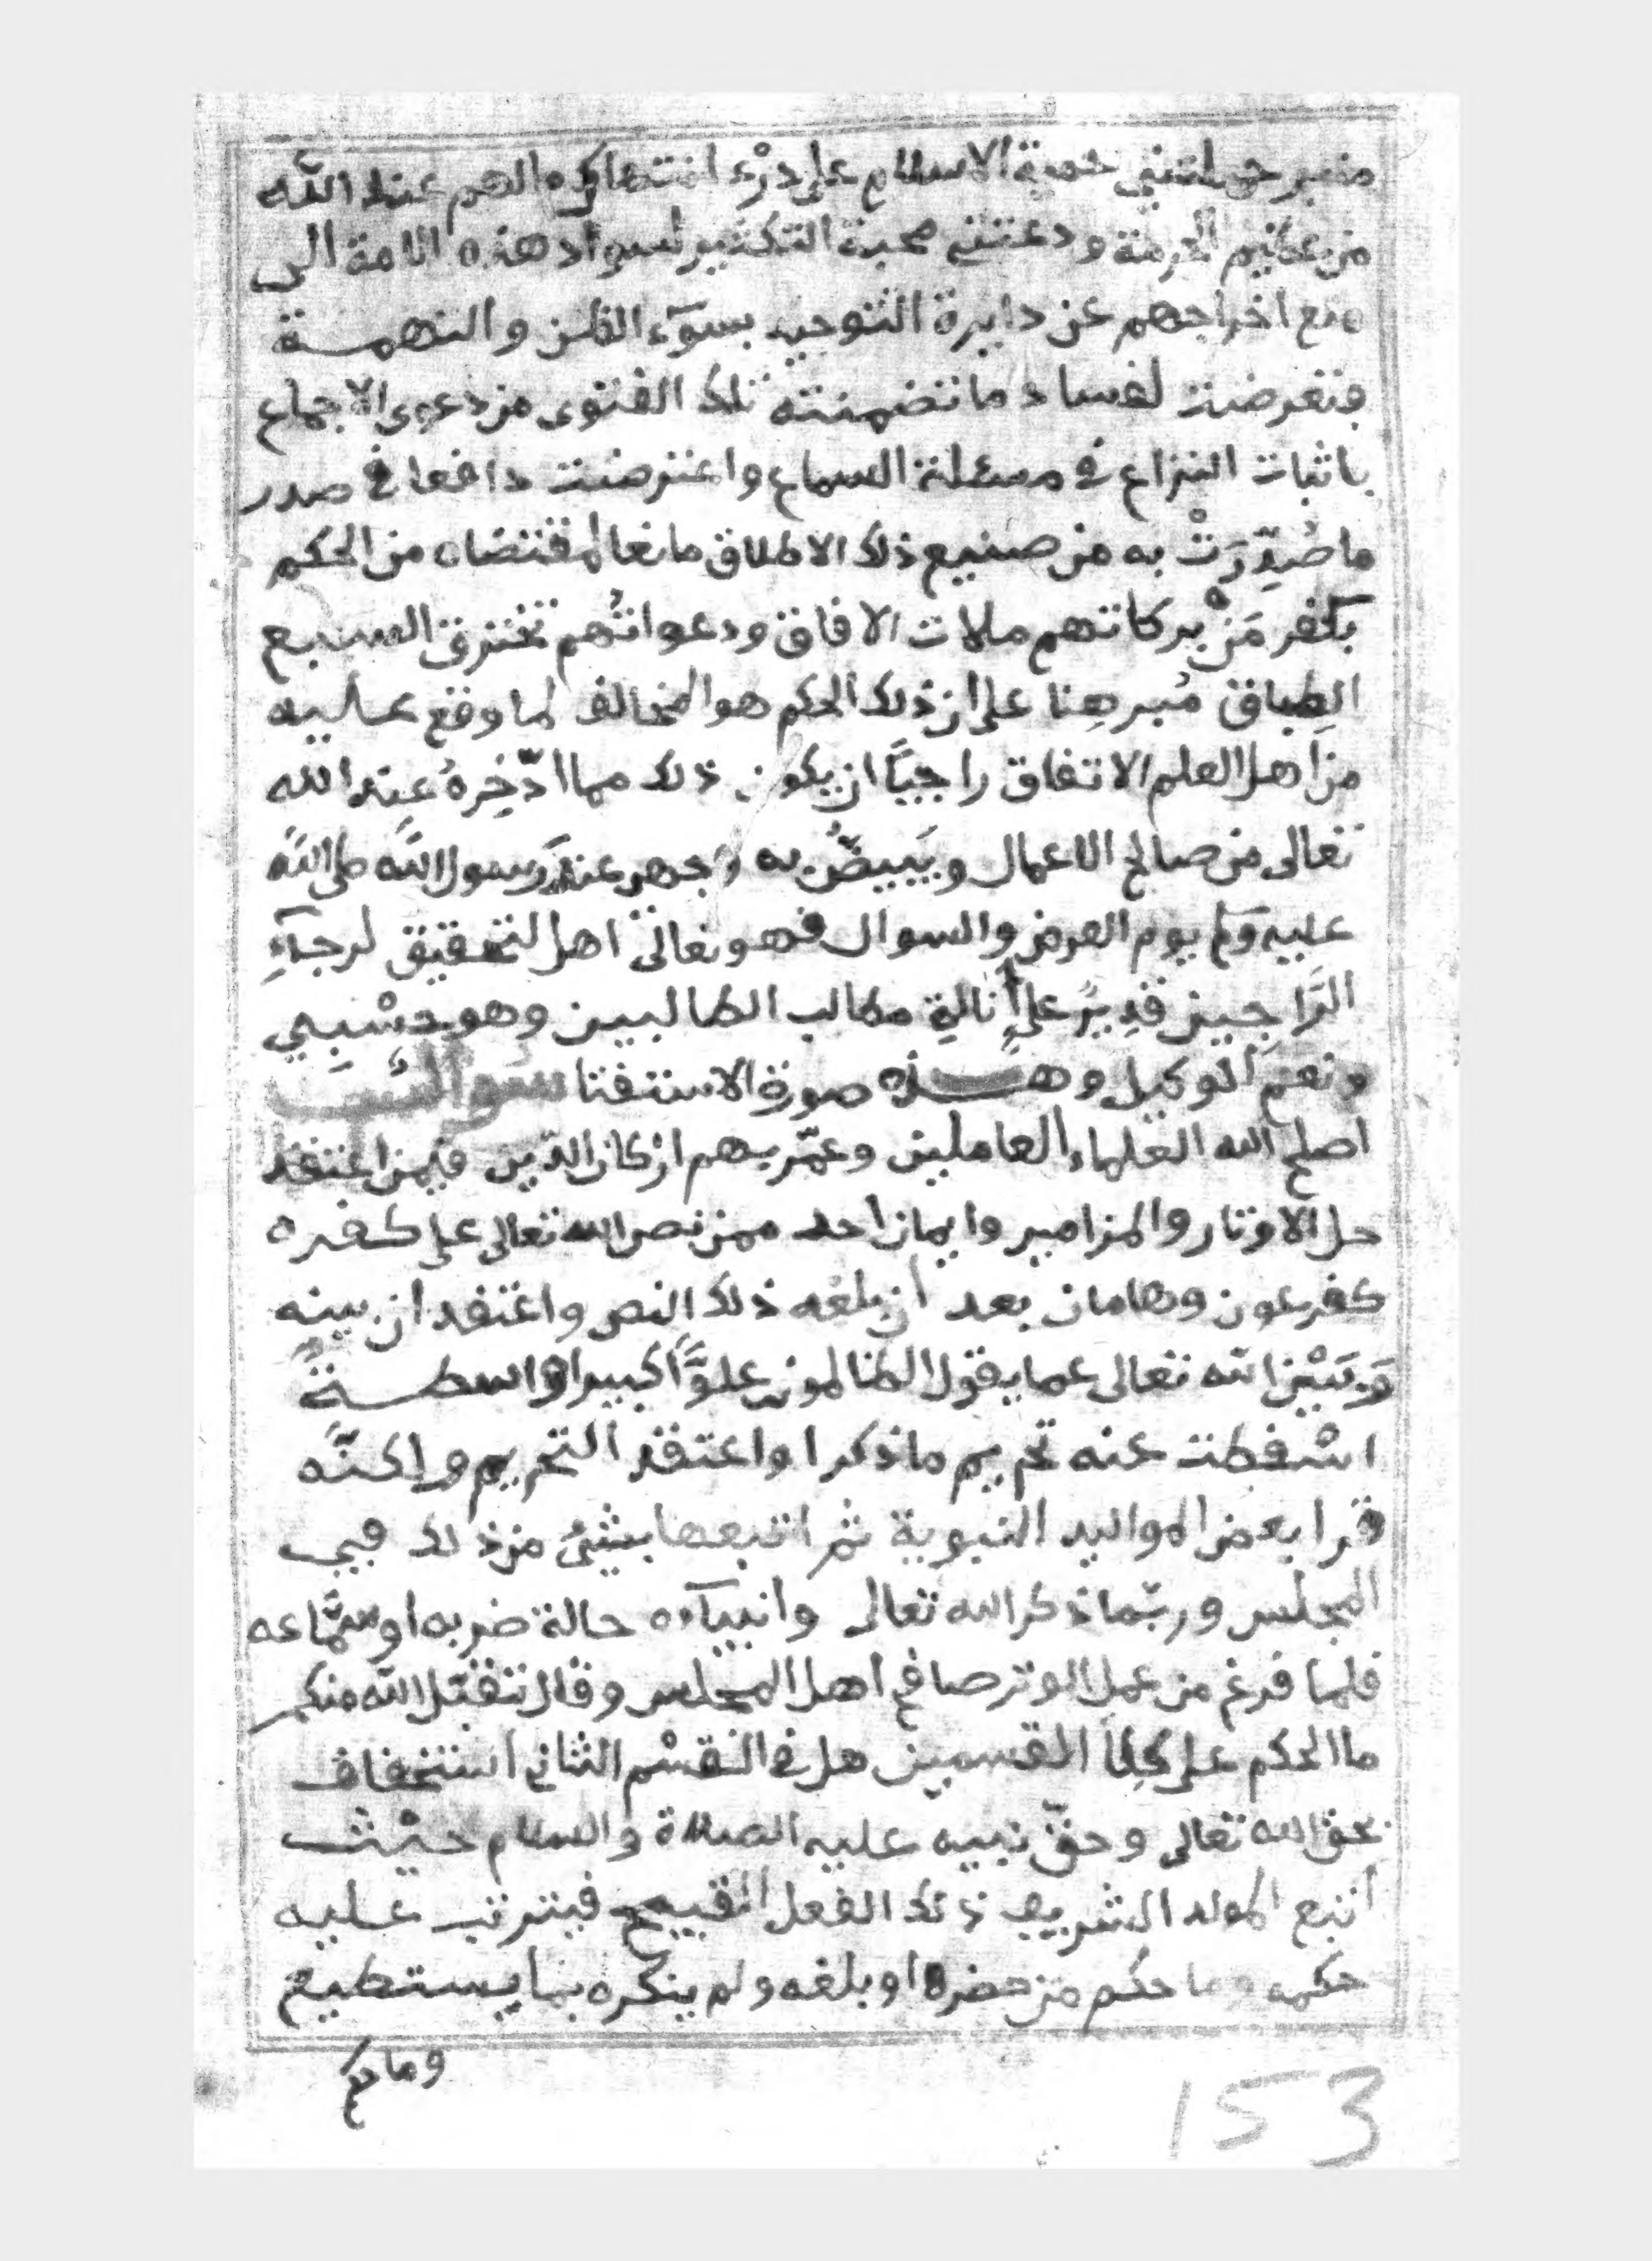 حملتني حمية الاسلام على درء انتهاك ما لهم عند الله
من عظيم الحرمة ودعتني محبة التكثير لسواد هذه الامة الى
منع اخراجهم عن دايرة التوحيد بسوٓء الظن والتهمة
فتعرضت لفساد ما تضمنته تلك الفتوى من دعوى الاجماع
باثبات النزاع في مسئلة السماع واعترضت دافعا في صدر
ما صُدِّرَتْ به من صنيع ذلك الاطلاق مانعا لمقتضاه من الحكم
بكفر مَنْ بركاتهم ملات الافاق ودعواتُهم تخترق السبع
الطِباق مُبرهِنا على ان ذلك الحكم هو المخالف لما وقع عليه
من اهل العلم الاتفاق راجيًا ان يكون ذلك مما ادّخِرهُ عند الله
تعالى من صالح الاعمال ويَبيضُّ به وجهي عند رسول الله صلى الله
عليه وسلم يوم العرض والسوال فهو تعالى اهل لتحقيق لرجآءِ
الرَّاجين قديرٌ على اِنالةِ مطالب الطالبين وهو حسْبي
ونعم الوكيل وهـــذه صورة الاستفتا سوال
اصلح الله العلماء العاملين وعمّر بهم اركان الدّين فيمن اعتقد
حل الاوتار والمزامير وايمان احد ممن نص الله تعالى على كفره
كفرعون وهامان بعد أن بلغه ذلك النص واعتقد ان بينه
وَبَيْن الله تعالى عما يقول الظالمون علوًّا كبيرا واسطــةً
اسْقطت عنه تحريم ما ذكر او اعتقد التحريم ولكنّه
قرا بعض المواليد النبوية ثم اتبعها بشئ من ذلك في
المجلس وربّما ذكر الله تعالى وانبيآءه حالة ضربه او سمّاعه
فلما فرغ من عمل الوتر صافح اهل المجلس وقال تقبّل الله منكم
ما الحكم على كِلا القسمين هل في القسْم الثاني استخفاف
بحق الله تعالى وحقّ نبيه عليه الصلاة والسلام حيْث
أتبع المولد الشريف ذلك الفعل القبيح فيترتب عليه
حكمه وما حكم من حضره او بلغه ولم ينكره بما يستطيع
وما حكم
153